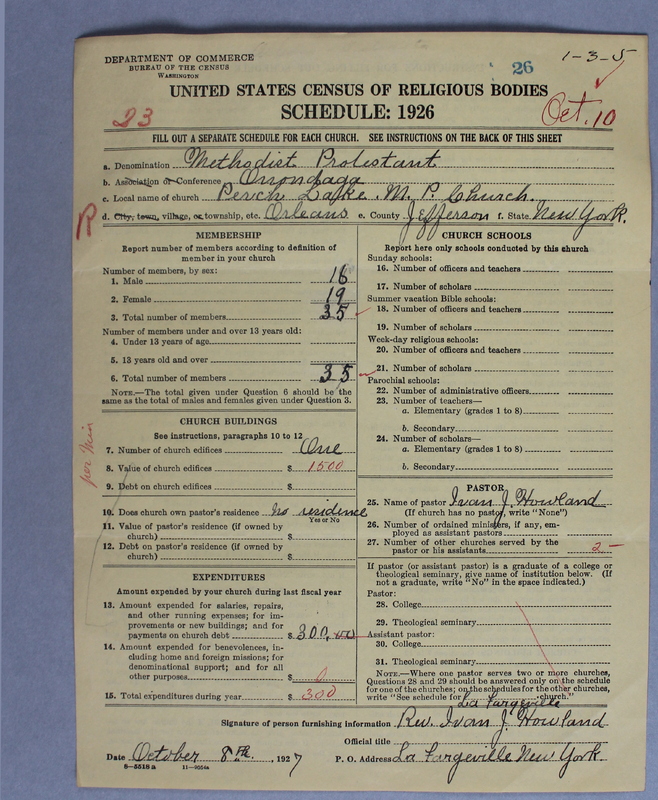 DEPARTMENT OF COMMERCE
BUREAU OF THE CENSUS
WASHINGTON
26
1-3-5
UNITED STATES CENSUS OF RELIGIOUS BODIES
SCHEDULE: 1926
23
Oct. 10
FILL OUT A SEPARATE SCHEDULE FOR EACH CHURCH. SEE INSTRUCTIONS ON THE BACK OF THIS SHEET
a. Denomination Methodist Protestant
b. Association or Conference Onondaga
c. Local name of church Perch Lake M. P. Church.
R
d. City, town, village, or township, etc. Orleans e. County Jefferson f. State New York.
MEMBERSHIP
Report number of members according to definition of
member in your church
Number of members, by sex:
1. Male 16
2. Female 19
3. Total number of members 35
Number of members under and over 13 years old:
4. Under 13 years of age
5. 13 years old and over
6. Total number of members 35
NOTE.—The total given under Question 6 should be the
same as the total of males and females given under Question 3.
CHURCH BUILDINGS
See instructions, paragraphs 10 to 12
7. Number of church edifices One
8. Value of church edifices $ 1500
9. Debt on church edifices $
per Min
10. Does church own pastor's residence no residence
Yes or No
11. Value of pastor's residence (if owned by
church) $
12. Debt on pastor's residence (if owned by
church) $
EXPENDITURES
Amount expended by your church during last fiscal year
13. Amount expended for salaries, repairs,
and other running expenses; for im-
provements or new buildings; and for
payments on church debt $ 300.00
14. Amount expended for benevolences, in-
cluding home and foreign missions; for
denominational support; and for all
other purposes $ 0
15. Total expenditures during year $ 300
CHURCH SCHOOLS
Report here only schools conducted by this church
Sunday schools:
16. Number of officers and teachers
17. Number of scholars
Summer vacation Bible schools:
18. Number of officers and teachers
19. Number of scholars
Week-day religious schools:
20. Number of officers and teachers
21. Number of scholars
Parochial schools:
22. Number of administrative officers
23. Number of teachers—
a. Elementary (grades 1 to 8)
b. Secondary
24. Number of scholars—
a. Elementary (grades 1 to 8)
b. Secondary
PASTOR
25. Name of pastor Ivan J. Howland
(If church has no pastor, write "None")
26. Number of ordained ministers, if any, em-
ployed as assistant pastors
27. Number of other churches served by the
pastor or his assistants 2
If pastor (or assistant pastor) is a graduate of a college or
theological seminary, give name of institution below. (If
not a graduate, write "No" in the space indicated.)
Pastor:
28. College
29. Theological seminary
Assistant pastor:
30. College
31. Theological seminary
NOTE.—Where one pastor serves two or more churches,
Questions 28 and 29 should be answered only on the schedule
for one of the churches; on the schedules for the other churches,
write "See schedule for La Fargeville church."
Signature of person furnishing information Rev. Ivan J. Howland
Official title
Date October 8th, 1927 P. O. Address La Fargeville New York.
8—5518 a 11—9054a